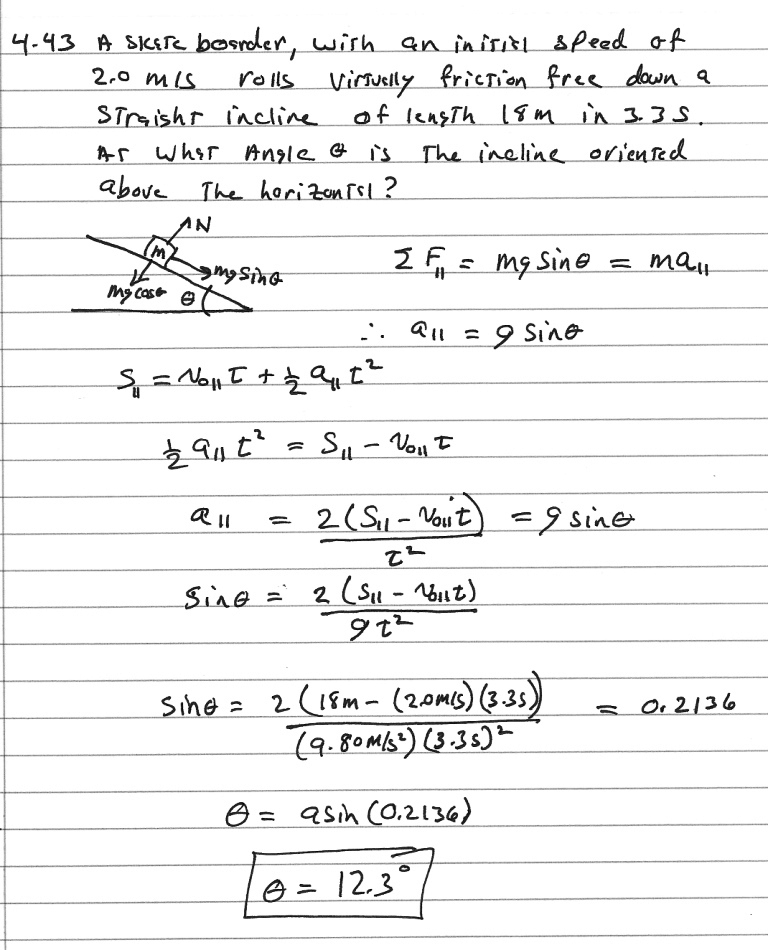 4-43 A skate boarder, with an initial speed of
2.0 m/s rolls virtually friction free down a
straight incline of length 18m in 3.3 s.
At what Angle θ is The incline oriented
above The horizontal?
N
m
mg sinθ
mg cosθ
θ
Σ F∥ = mg sinθ = ma∥
∴ a∥ = g sinθ
S∥ = v₀∥ t + ½ a∥ t²
½ a∥ t² = S∥ - v₀∥ t
a∥ = 2(S∥ - v₀∥t) / t² = g sinθ
sinθ = 2(S∥ - v₀∥t) / g t²
sinθ = 2(18m - (2.0m/s)(3.3s)) / (9.80m/s²)(3.3s)² = 0.2136
θ = asin(0.2136)
θ = 12.3°